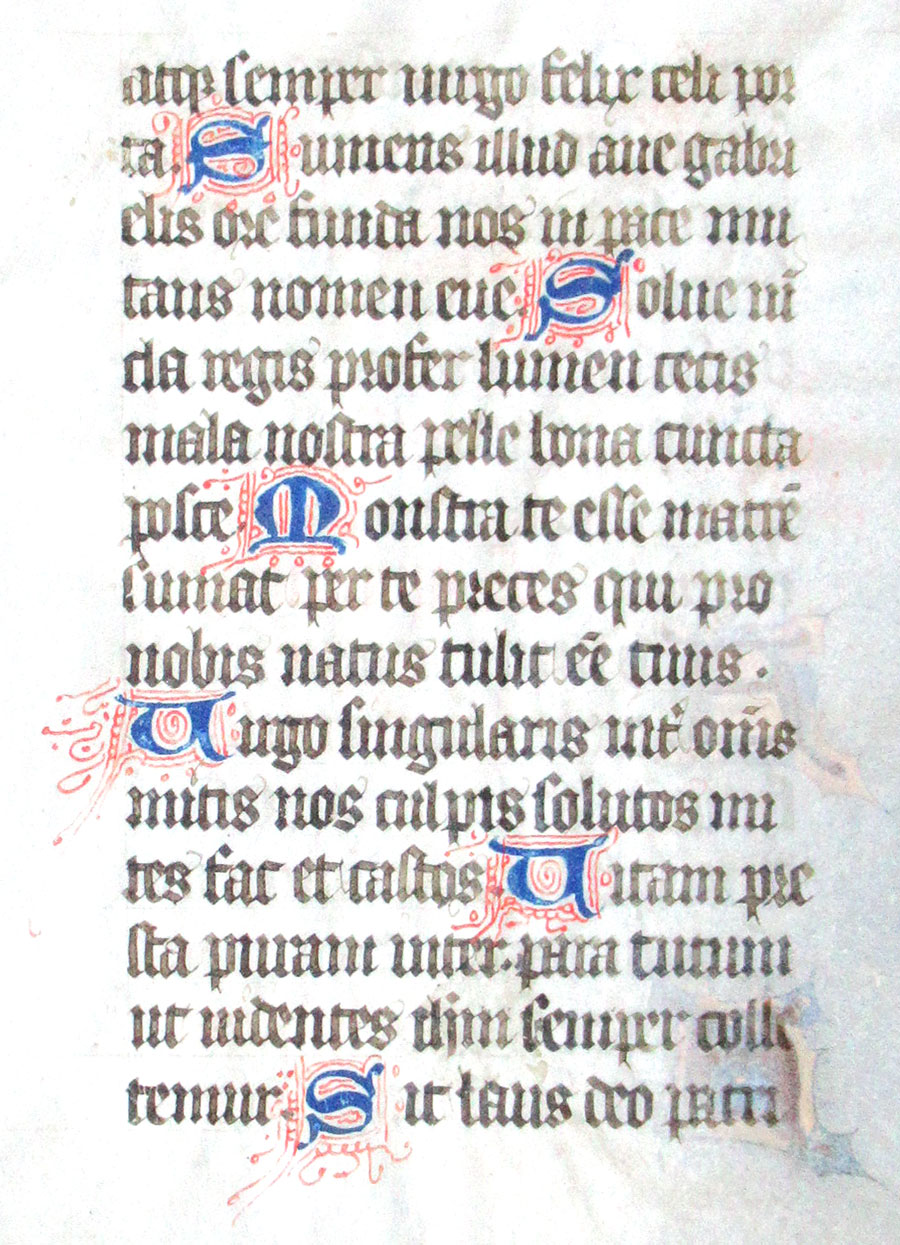 atq semper uirgo felix celi por
ta. Sumens illud aue gabri
elis ore funda nos in pace mu
tans nomen eue. Solue uī
cla regis profer lumen cecis
mala nostra pelle bona cuncta
posce. Monstra te esse matrē
sumat per te preces qui pro
nobis natus tulit eē tuus.
Uirgo singularis int̉ om̄is
mitis nos culpis solutos mi
tes fac et castos. Uitam pre
sta puram inter para tutum
ut uidentes ihm semper colle
temur. Sit laus deo patri